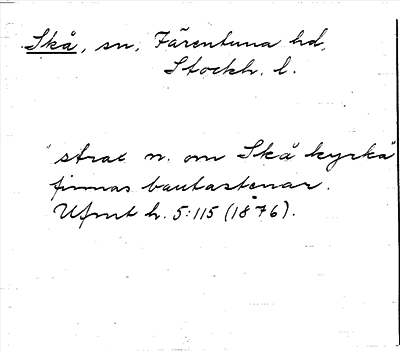 Skå, sn, Färentuna hd,
Stockh. l.
"strax n. om Skå kyrka"
finnas bautastenar.
Ufmt h. 5:115 (1876).